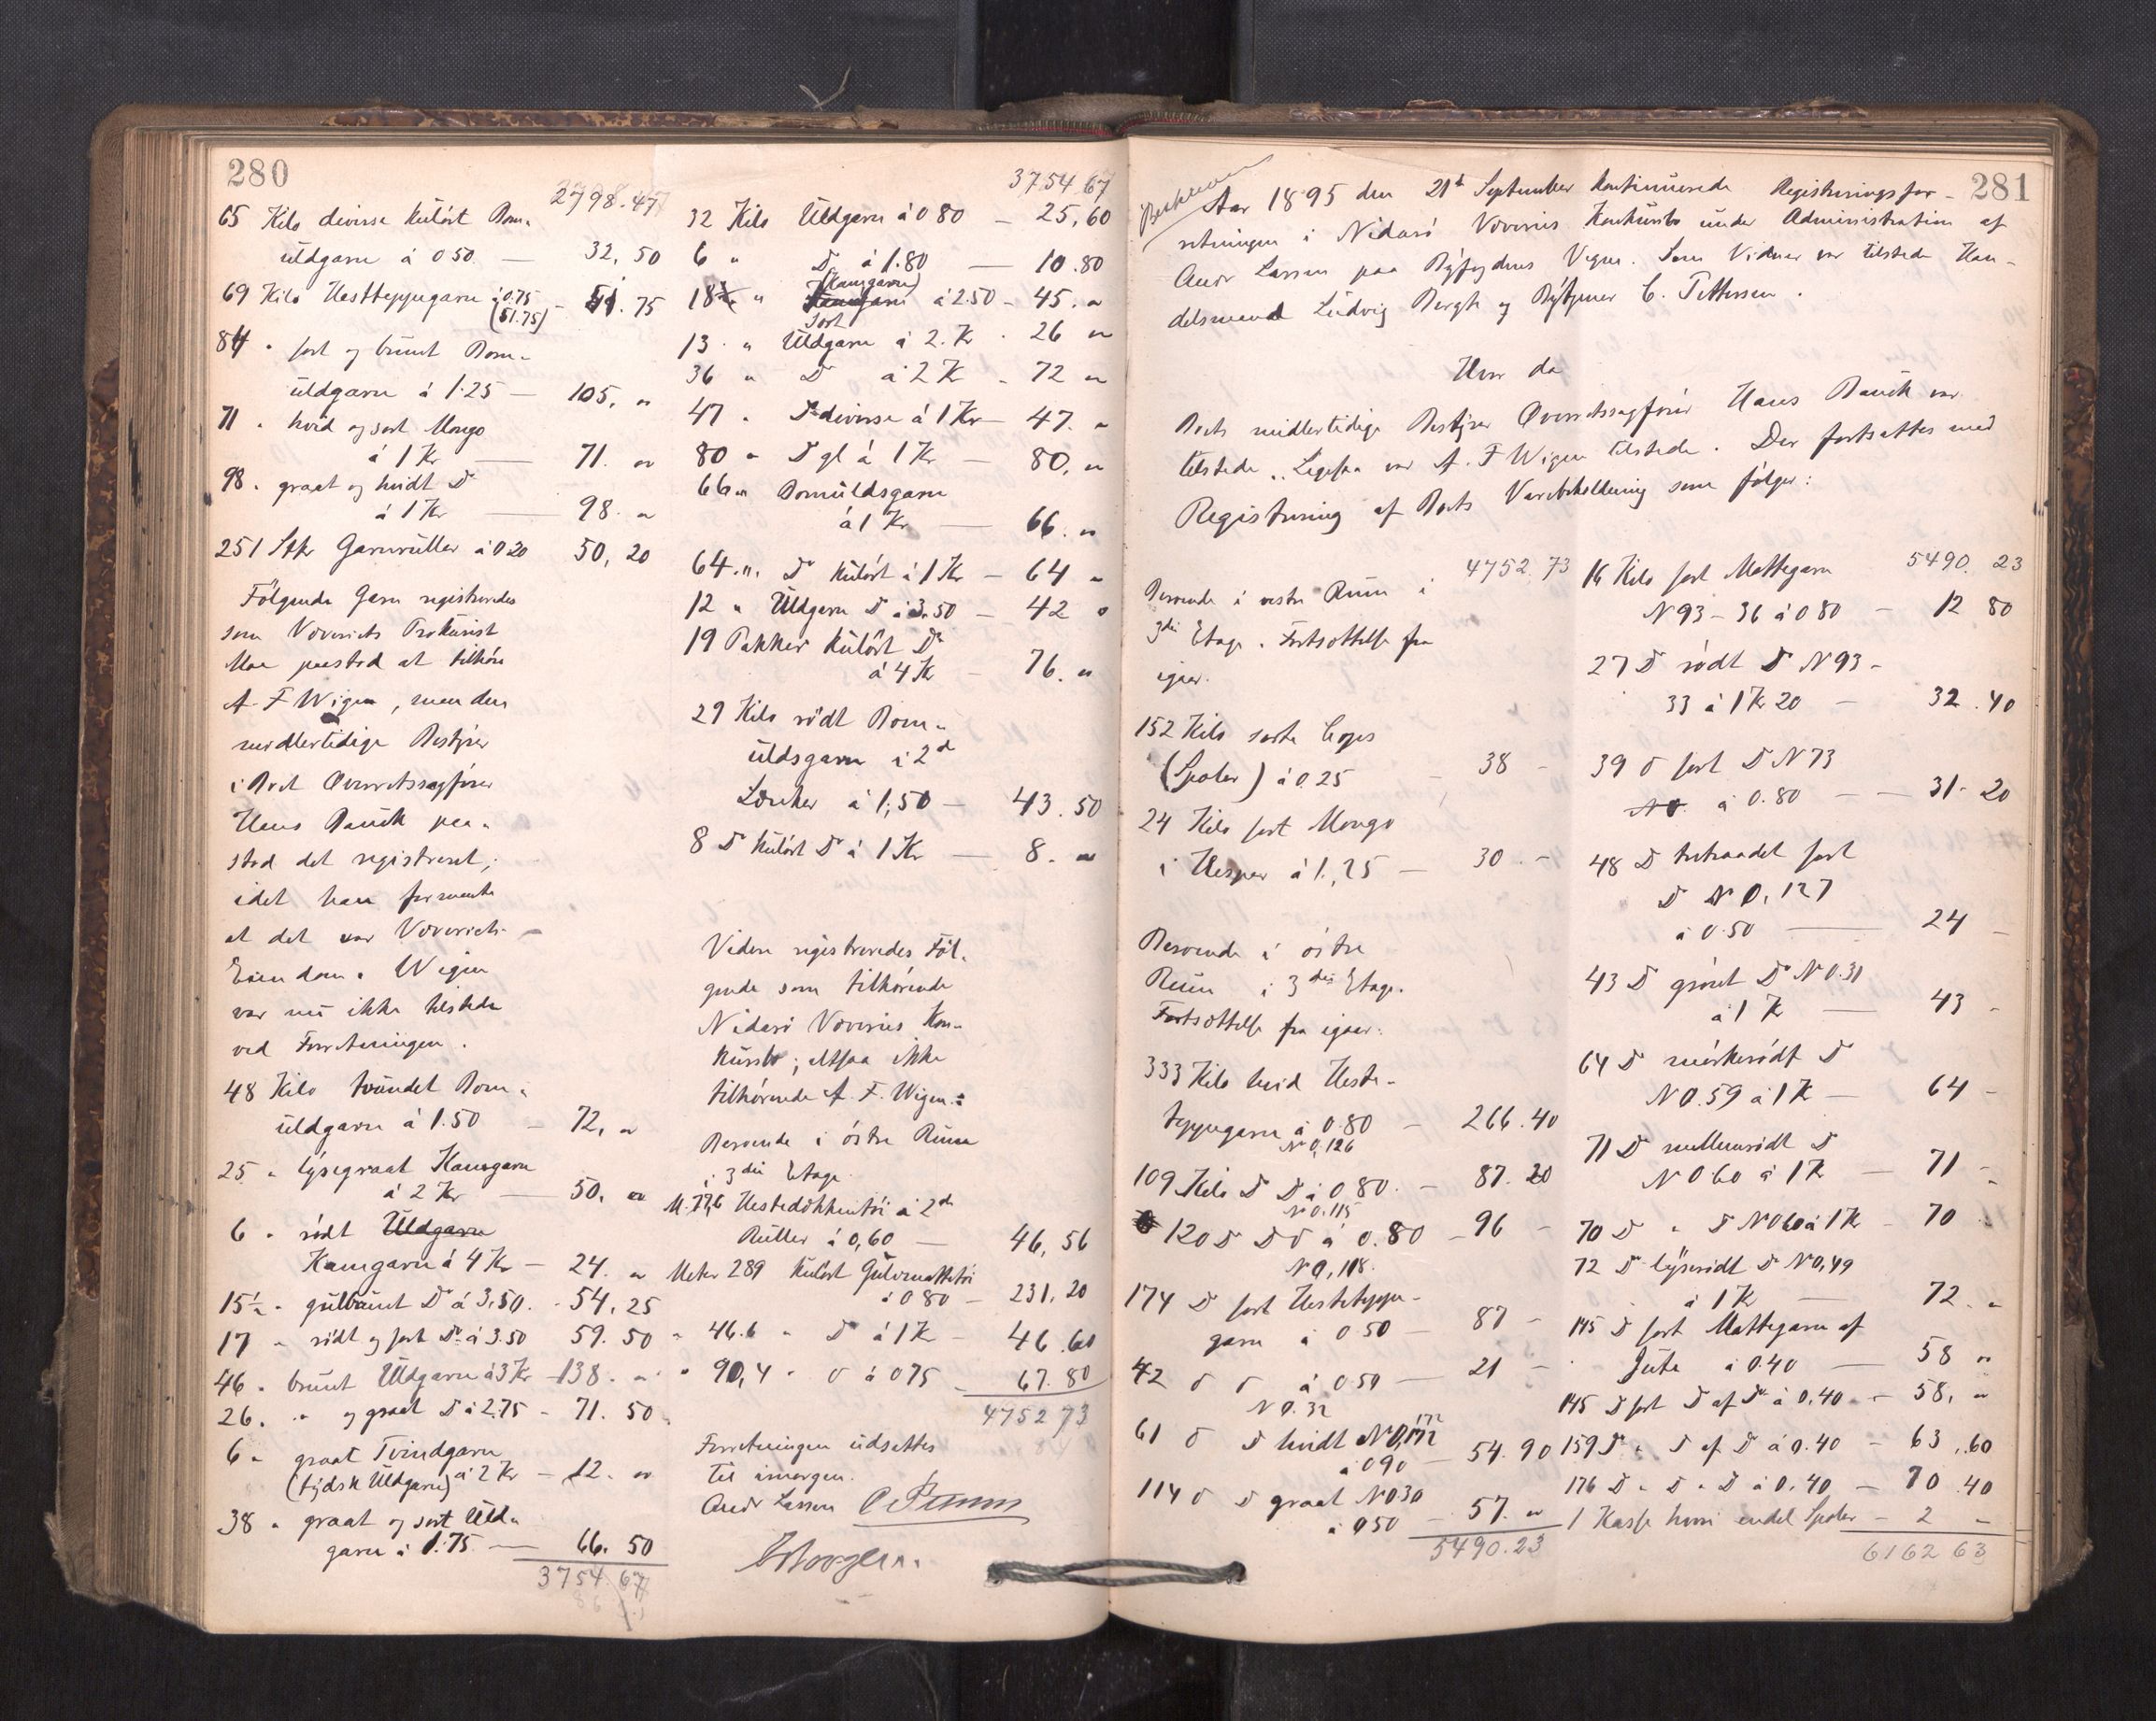 280
2798.47
65 Kilo diverse kulört Bom-
uldgarn á 0 50 — 32,50
69 Kilo Hestteppugarn á 0.75
(51.75) - 51.75
84 " sort og brunt Bom-
uldgarn á 1.25 — 105, "
71 " hvid og sort Mongo
á 1 Kr — 71. "
98 " graat og hvidt Do
á 1 Kr — 98. "
251 Stkr Garnruller á 0 20 50,20
Følgende Garn registreredes
som Væveriets Prokurist
Moe paastod at tilhöre
A. F Wigen, men den
midlertidige Bestyrer
i Boet Overretssagfører
Hans Bauck paa-
stod det registreret,
idet han formente
at det var Væveriets
Eiendom. Wigen
var nu ikke tilstede
ved Forretningen.
48 Kilo tvundet Bom-
uldgarn á 1.50 — 72, "
25 " lysegraat Kamgarn
á 2 Kr — 50, "
6 " rødt Uldgarn
Kamgarn á 4 Kr — 24. "
15½ " gulbrunt Do á 3,50. - 54,25
17 " rødt og sort Do á 3.50 59.50
46 " brunt Uldgarn á 3 Kr - 138. "
26. " " og graat D á 2.75 - 71.50
6 " graat Tvindgarn
(tydsk Uldgarn) á 2 Kr — 12. "
38 " graat og sort Uld-
garn á 1.75 — 66.50
3754.67
3754.67
32 Kilo Uldgarn á 0 80 — 25,60
6 " Do á 1.80 — 10.80
(Kamgarn)
18 " Kamgarn á 2.50 - 45. "
Sort
13 " Uldgarn á 2. Kr - 26 "
36 " Do á 2 Kr - 72 "
47 " Do diverse á 1 Kr - 47. "
80 " D gl á 1 Kr — 80, "
66 " Bomuldsgarn
á 1 Kr — 66. "
64. " Do kulört á 1 Kr — 64 "
12 " Uldgarn D á 3.50 — 42 "
19 Pakker kulört Do
á 4 Kr - 76. "
29 Kilo rödt Bom-
uldsgarn i 2de
Lænker á 1,50 — 43.50
8 D kulört D á 1 Kr — 8. "
Videre registreredes Föl-
gende som tilhörende
Nidarö Væveries Kon-
kursbo; altsaa ikke
tilhörende A. F. Wigen:
Beroende i östre Rum
i 3die Etage.
M. 77,6 Hestedækkentöi i 2de
Ruller á 0,60 — 46,56
Meter 289 kulört Gulvmattetöi
á 0 80 — 231,20
" 46.6 " D á 1 K - 46.60
" 90,4 " D á 0 75 - 67.80
4752 73
Forretningen udsattes
til imorgen.
Andr Larsen
281
Aar 1895 den 21de September kontinuerede Registreringsfor-
retningen i Nidarö Væveries Konkursbo under Administration af
Andr Larsen paa Byfogdens Vegne. Som Vidner var tilstede Han-
delsmand Ludvig Bergh og Bytjener C. Pettersen.
Hvor da
Boets midlertidige Bestyrer Overretssagfører Hans Bauck var
tilstede. Ligesaa var A. F Wigen tilstede. Der fortsattes med
Registrering af Boets Varebeholdning som følger:
4752 73
Beroende i vestre Rum i
3die Etage. Fortsættelse fra
igaar.
152 Kilo sorte Cops
(Spoler) á 0.25 - 38 -
24 Kilo sort Mongo
i Hesper á 1,25 — 30. -
Beroende i östre
Rum i 3die Etage.
Fortsættelse fra igaar:
333 Kilo hvid Heste-
teppegarn á 0.80 - 266.40
No 0,126
109 Kilo D D á 0 80. - 87.20
No 0.115
120 D D D á 0.80 - 96 -
No 0,118.
174 D sort Hesteteppe-
garn á 0 50 — 87 -
42 D D á 0 50 — 21 -
No 0.32
61 D D hvidt No 0,172
á 0 90 - 54.90
114 D D graat No 0 30
á 0 50 - 57. "
5490.23
5490. 23
16 Kilo sort Mattegarn
N 93-36 á 0 80 - 12 80
27 D rödt D N 93-
33 á 1 Kr 20 - 32.40
39 D sort D N 73
á 0.80 - - 31.20
48 D tretraadet sort
D No 0,127
á 0.50 — 24 -
43 D grönt D No 0.31
á 1 K — 43 -
64 D mörkerödt D
No 0.59 á 1 K — 64 -
71 D mellemrödt D
No 0 60 á 1 K — 71 -
70 D " D No 0 60 á 1 K - 70 -
72 D lyserödt D No 0,49
á 1 K — 72. "
145 D sort Mattegarn af
Jute á 0.40 — 58 "
145 D sort D af Do á 0,40 - 58, "
159 D " D af D á 0.40 - 63,60
176 D " D " D á 0,40 - 70.40
1 Kasse hvori endel Spoler - 2 -
6162 63